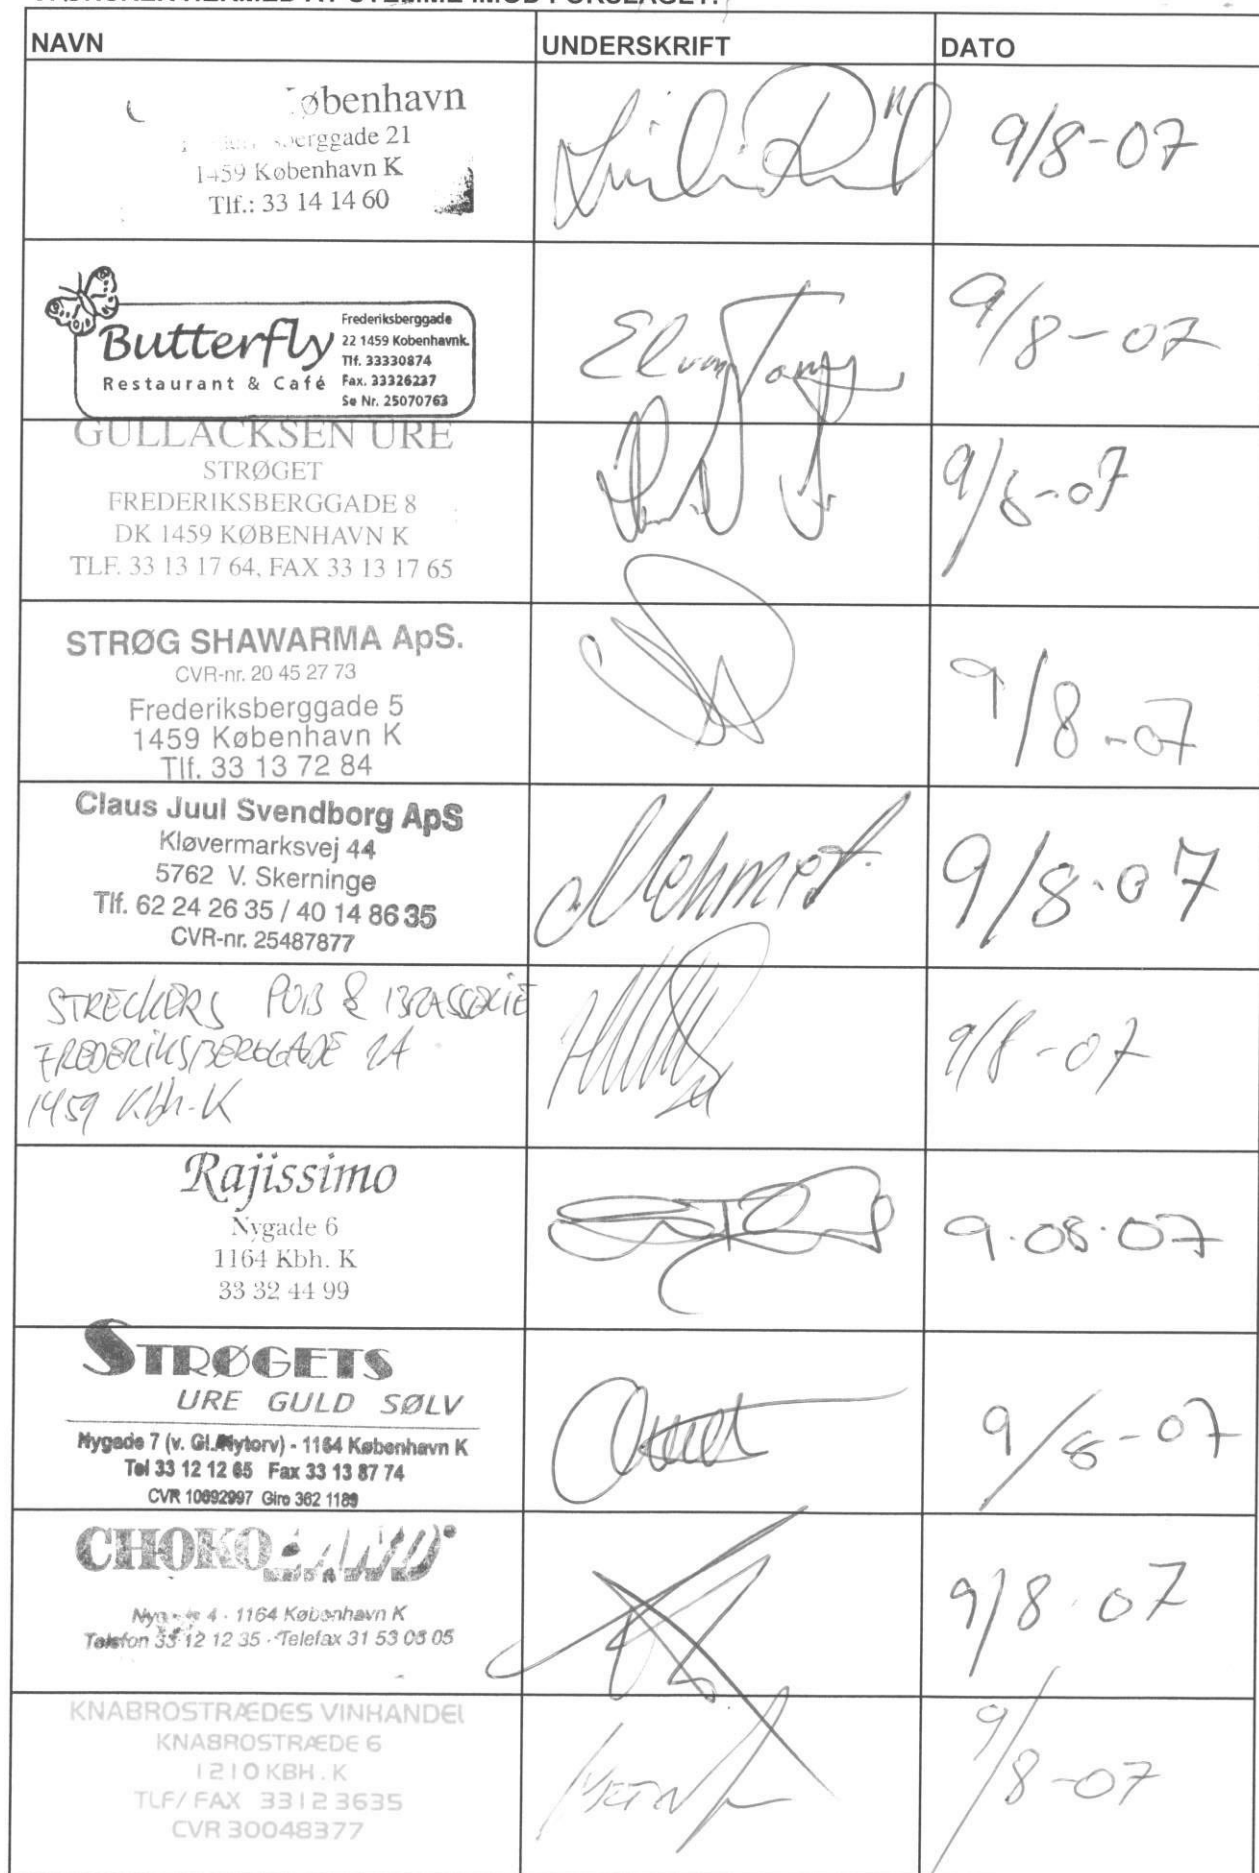 NAVN UNDERSKRIFT DATO
øbenhavn
berggade 21
1459 København K
Tlf.: 33 14 14 60
9/8-07
Butterfly
Restaurant & Café
Frederiksberggade
22 1459 Kobenhavnk.
Tlf. 33330874
Fax. 33326237
Se Nr. 25070763
9/8-07
GULLACKSEN URE
STRØGET
FREDERIKSBERGGADE 8
DK 1459 KØBENHAVN K
TLF. 33 13 17 64, FAX 33 13 17 65
9/8-07
STRØG SHAWARMA ApS.
CVR-nr. 20 45 27 73
Frederiksberggade 5
1459 København K
Tlf. 33 13 72 84
9/8-07
Claus Juul Svendborg ApS
Kløvermarksvej 44
5762 V. Skerninge
Tlf. 62 24 26 35 / 40 14 86 35
CVR-nr. 25487877
Mehmet
9/8-07
STRECKERS PUB & BRASSERIE
FREDERIKSBERGGADE
1459 Kbh-K
9/8-07
Rajissimo
Nygade 6
1164 Kbh. K
33 32 44 99
9.08.07
STRØGETS
URE GULD SØLV
Nygade 7 (v. Gl. Nytorv) - 1164 København K
Tel 33 12 12 65 Fax 33 13 87 74
CVR 10692997 Giro 362 1189
9/8-07
CHOKOLAND
4 - 1164 København K
Telefon 33 12 12 35 - Telefax 31 53 06 05
9/8-07
KNABROSTRÆDES VINHANDEL
KNABROSTRÆDE 6
1210 KBH. K
TLF/FAX 3312 3635
CVR 30048377
9/8-07